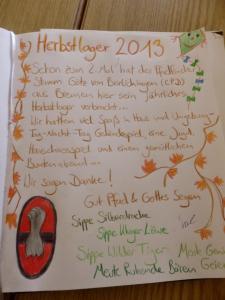 Herbstlager 2013
Schon zum 2. Mal hat der Pfadfinder
Stamm Götz von Berlichingen (CPD)
aus Bremen hier sein jährliches
Herbstlager verbracht...
Wir hatten viel Spaß in Haus und Umgebung
Tag-Nacht-Tag Geländespiel, eine Jagd,
und einem gemütlichen
Buntenabend...
Wir sagen Danke!
Gut Pfad & Gottes Segen
Sippe
Sippe Löwe
Sippe Wilder Tiger
Meute
Meute Bären